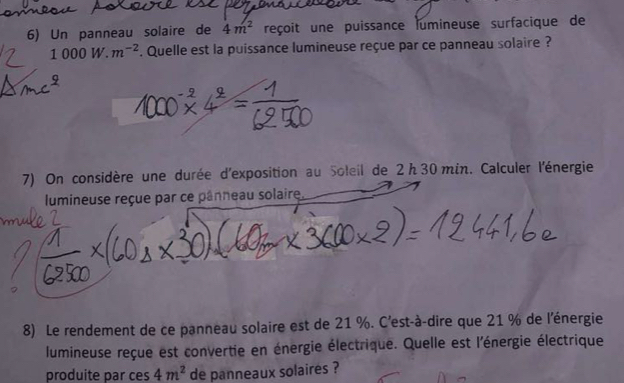 panneau solaire est perpendiculaire
6) Un panneau solaire de 4 m² reçoit une puissance lumineuse surfacique de
1 000 W.m⁻². Quelle est la puissance lumineuse reçue par ce panneau solaire ?
1000⁻² × 4² = 1/62500
7) On considère une durée d'exposition au Soleil de 2 h 30 min. Calculer l'énergie
lumineuse reçue par ce panneau solaire.
? 1/62500 × (60s × 30) (60m × 3600 × 2) = 12441,6
8) Le rendement de ce panneau solaire est de 21 %. C'est-à-dire que 21 % de l'énergie
lumineuse reçue est convertie en énergie électrique. Quelle est l'énergie électrique
produite par ces 4 m² de panneaux solaires ?